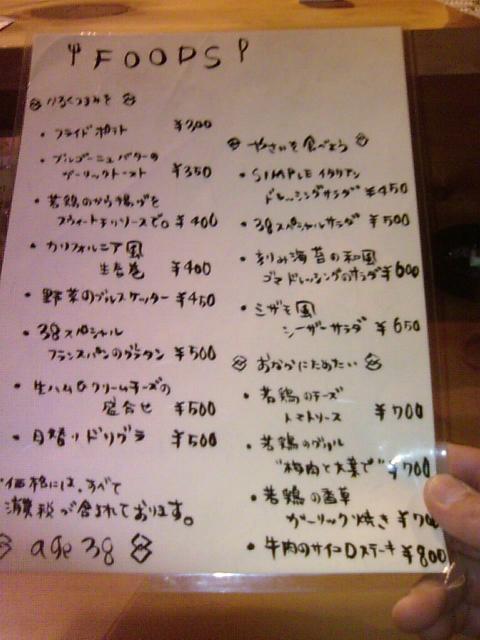 FOODS
かるくつまみを
・フライドポテト ¥300
・ブルゴーニュバターの
ガーリックトースト ¥350
・若鶏のから揚げを
スウィートチリソースで。 ¥400
・カリフォルニア風
生春巻 ¥400
・野菜のブルスケッター ¥450
・38スペシャル
フランスパンのグラタン ¥500
・生ハム&クリームチーズの
盛合せ ¥500
・日替りドリグラ ¥500
価格には、すべて
消費税が含まれております。
age 38
やさいを食べよう
・SIMPLEイタリアン
ドレッシングサラダ ¥450
・38スペシャルサラダ ¥500
・刻み海苔の和風
ゴマドレッシングのサラダ ¥600
・ミザモ風
シーザーサラダ ¥650
おなかにためたい
・若鶏のチーズ
トマトソース ¥700
・若鶏のグリル
"梅肉と大葉で" ¥700
・若鶏の香草
ガーリック焼き
・牛肉のサイコロステーキ ¥800